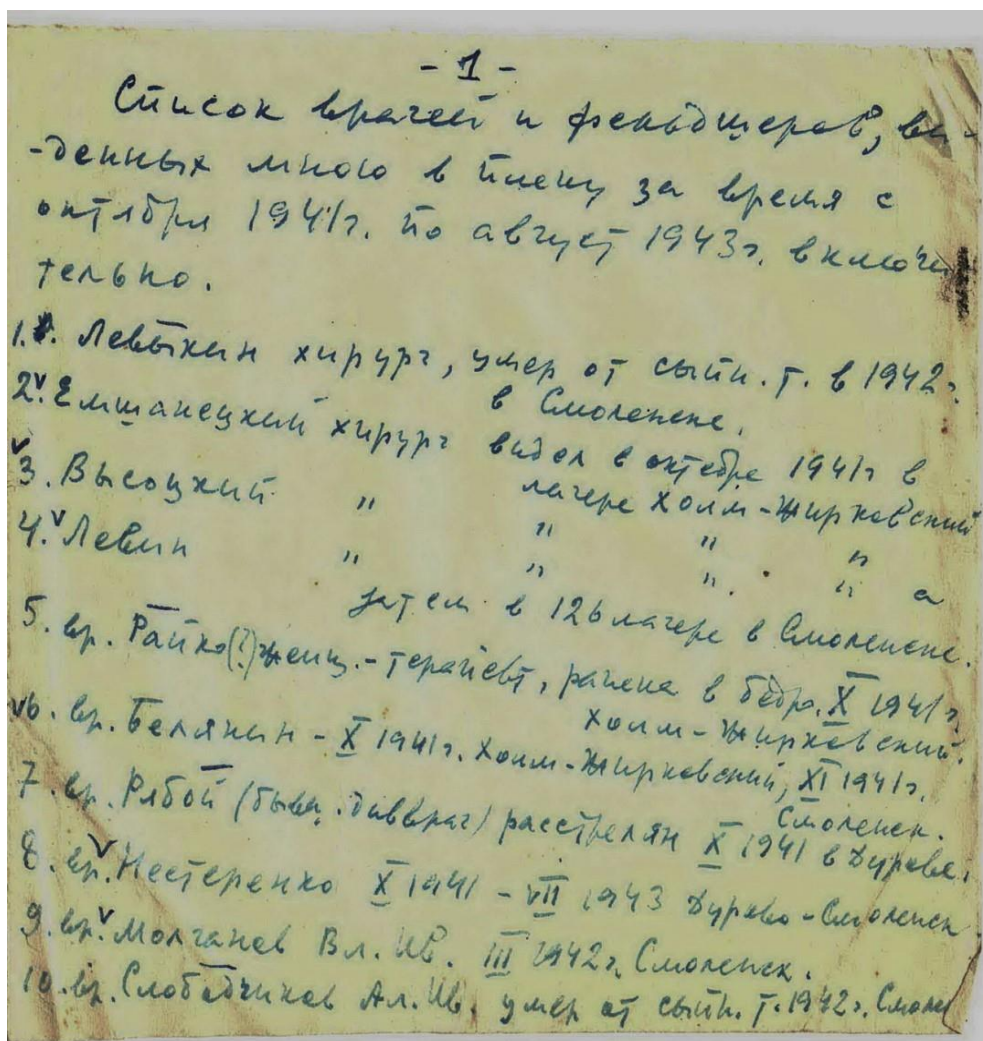 - 1 -
Список врачей и фельдшеров, ви-
-денных мною в плену за время с
октября 1941г. по август 1943г. включи
тельно.
1. Левыкин хирург, умер от сыпн. т. в 1942г.
в Смоленске.
2. Емшанецкий хирург видел в октябре 1941г в
лагере Холм-Жирковский
3. Высоцкий " " " "
4. Левин " " " " а
затем в 126 лагере в Смоленске.
5. вр. Райко(?) женщ. - терапевт, ранена в бедро. X 1941г.
Холм-Жирковский.
6. вр. Белянин - X 1941г. Холм-Жирковский, XI 1941г.
Смоленск.
7. вр. Рябой (бывш. дивврач) расстрелян X 1941 в Дурове.
8. вр. Нестеренко X 1941 - VII 1943 Дурово-Смоленск
9. вр. Молчанов Вл. Ив. III 1942г. Смоленск.
10. вр. Слободчиков Ал. Ив. умер от сыпн. т. 1942г. Смолен